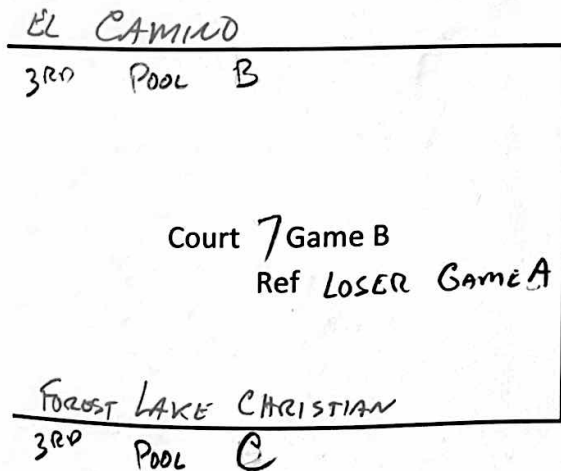 EL CAMINO
3RD POOL B
Court 7 Game B
Ref LOSER GAME A
FOREST LAKE CHRISTIAN
3RD POOL C